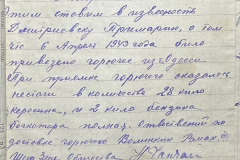 Этим ставим в известность
Дмитриевску Примарию, о том
что 6 Апреля 1943 года было
привезено горючее из Одессы
При приемке горючего оказалось
нехватки в количестве 28 кило
керосина, и 2 кило бензина
полная. Ответствений по
доставке горючего Волинкин Роман